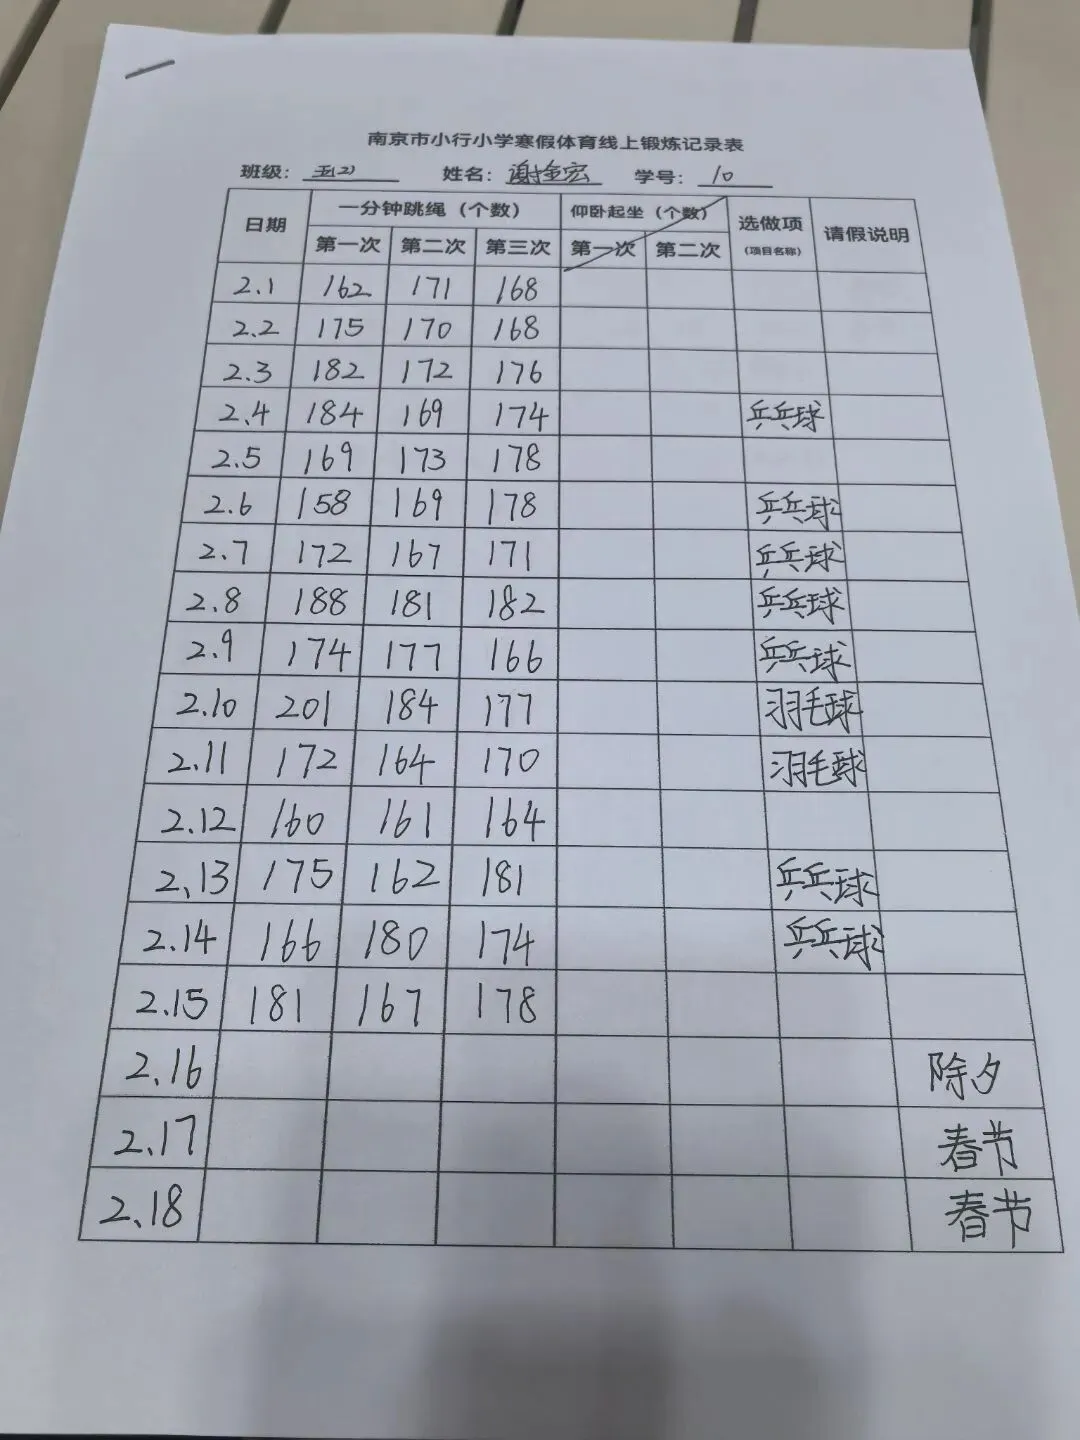 南京市小行小学寒假体育线上锻炼记录表
班级: 五(2) 姓名: 谢金宏 学号: 10
日期 一分钟跳绳（个数） 仰卧起坐（个数） 选做项（项目名称） 请假说明
第一次 第二次 第三次 第一次 第二次
2.1 162 171 168
2.2 175 170 168
2.3 182 172 176
2.4 184 169 174 乒乓球
2.5 169 173 178
2.6 158 169 178 乒乓球
2.7 172 167 171 乒乓球
2.8 188 181 182 乒乓球
2.9 174 177 166 乒乓球
2.10 201 184 177 羽毛球
2.11 172 164 170 羽毛球
2.12 160 161 164
2.13 175 162 181 乒乓球
2.14 166 180 174 乒乓球
2.15 181 167 178
2.16 除夕
2.17 春节
2.18 春节